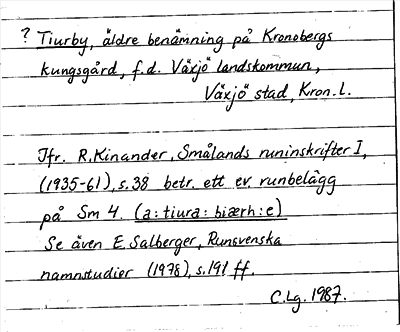 ? Tiurby, äldre benämning på Kronobergs
kungsgård, f.d. Växjö landskommun,
Växjö stad, Kron. L.
Jfr. R. Kinander, Smålands runinskrifter I,
(1935-61), s. 38 betr. ett ev. runbelägg
på Sm 4. (a:tiura:biærh:e)
Se även E. Salberger, Runsvenska
namnstudier (1978), s. 191 ff.
C.Lg. 1987.